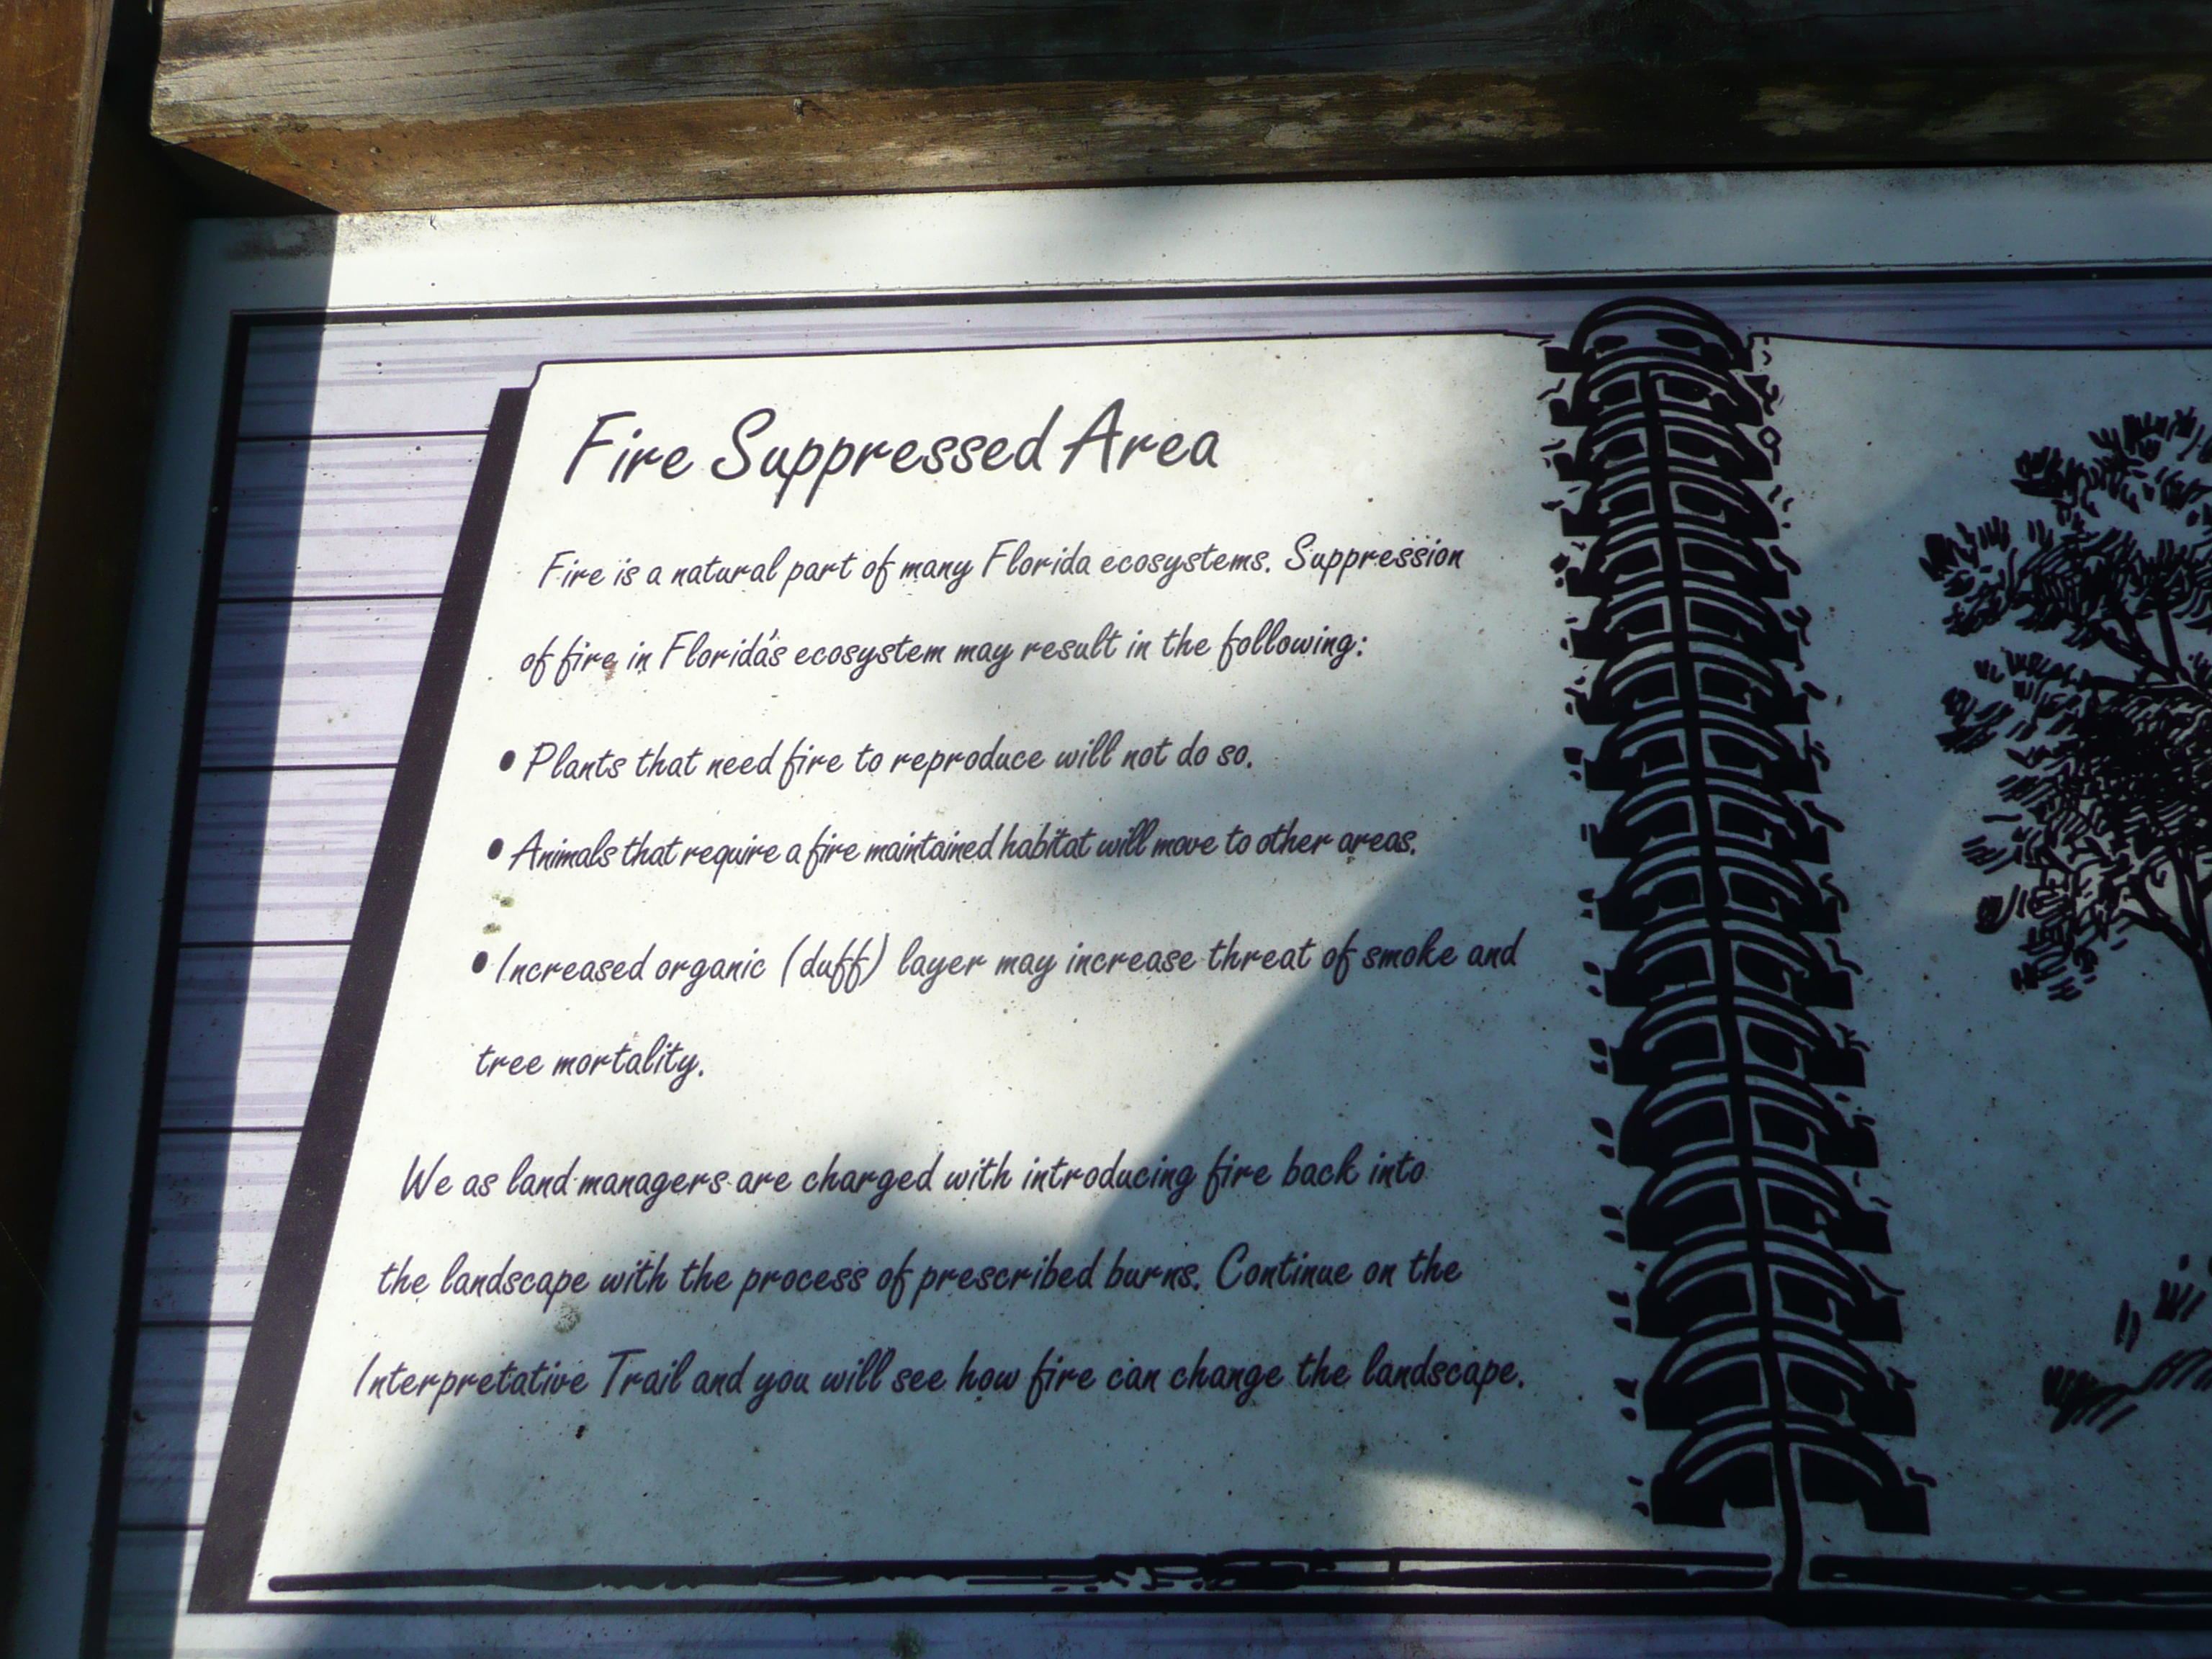 Fire Suppressed Area
Fire is a natural part of many Florida ecosystems. Suppression
of fire in Florida's ecosystem may result in the following:
• Plants that need fire to reproduce will not do so.
• Animals that require a fire maintained habitat will move to other areas.
• Increased organic (duff) layer may increase threat of smoke and
tree mortality.
We as land managers are charged with introducing fire back into
the landscape with the process of prescribed burns. Continue on the
Interpretative Trail and you will see how fire can change the landscape.